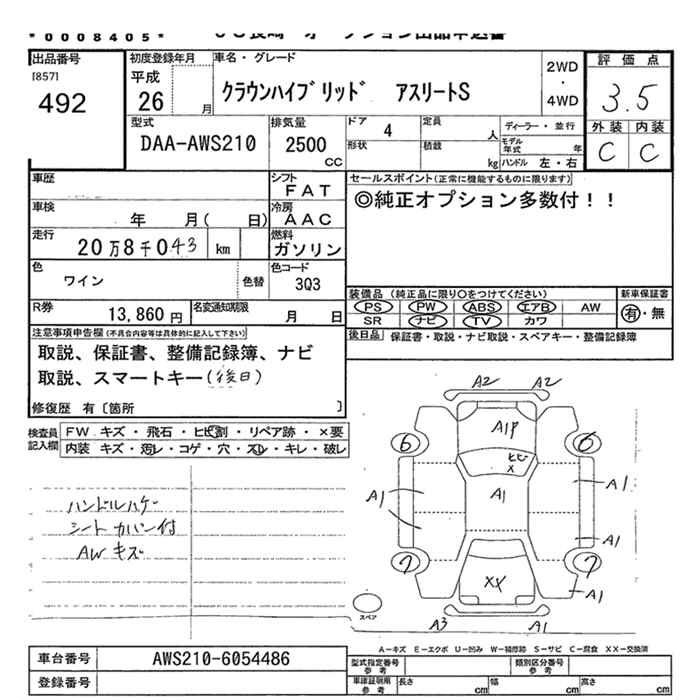 *0008405*
出品番号 初度登録年月 車名・グレード 評価点
[857] 492 平成 26 月 クラウンハイブリッド アスリートS 2WD・4WD 3.5
外装 内装
C C
型式 DAA-AWS210 排気量 2500 CC ドア 4 形状 定員 人 積載 kg ディーラー・並行 モデル年式 年 ハンドル 左・右
車歴 シフト FAT セールスポイント(正常に機能するものに限ります)
◎純正オプション多数付!!
車検 年 月( 日) 冷房 AAC
走行 20万8千043 km 燃料 ガソリン
色 ワイン 色替 色コード 3Q3
装備品 (純正品に限り○をつけてください) 新車保証書
PS PW ABS エアB AW 有・無
SR ナビ TV カワ
R券 13,860円 名変通知期限 月 日
後日品 保証書・取説・ナビ取説・スペアキー・整備記録簿
注意事項申告欄(不具合内容等は具体的に記入して下さい)
取説、保証書、整備記録簿、ナビ
取説、スマートキー(後日)
修復歴 有〔箇所 〕
検査員記入欄 FW.キズ・飛石・ヒビ割・リペア跡・×要
内装 キズ・汚レ・コゲ・穴・スレ・キレ・破レ
ハンドルハゲ
シートカバー付
AWキズ
A2 A2
6 A1P 6
ヒビ
X
A1 A1 A1
A1
7 XX 7
A1
スペア
A3 A1
A-キズ E-エクボ U-凹み W-補修跡 S-サビ C-腐食 XX-交換済
車台番号 AWS210-6054486
登録番号
型式指定番号 参考 類別区分番号 参考
車庫証明用 参考 長さ cm 幅 cm 高さ cm